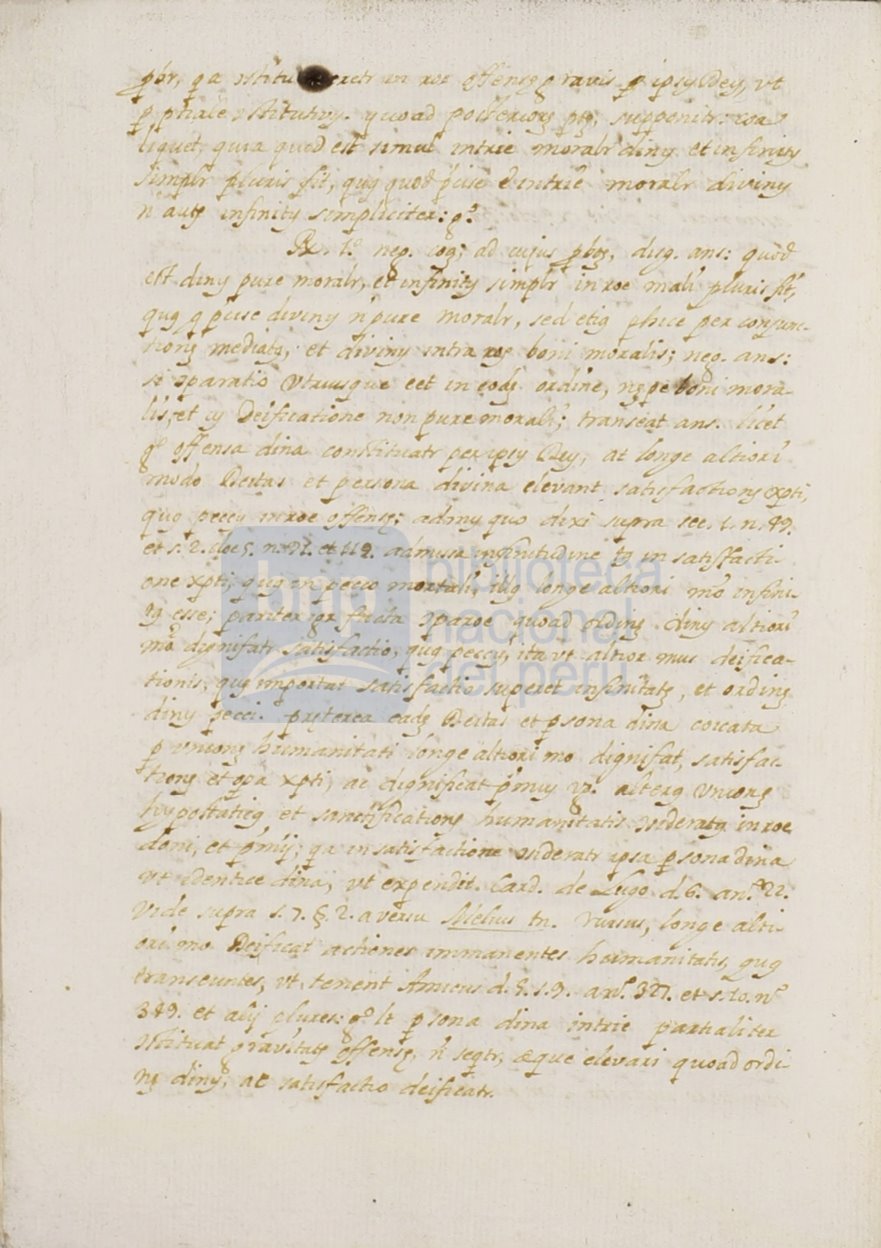 pbr, qa ꝯstitu in roe offensę gravis p ipsų Deų, vt
p ptiale ꝯstitutivų. quoad posteriorę ptę, supponitr. coa
liquet, quia quod est simul intrie moralr dinų et infinitų
simplr pluris fit, quų quod pcise é intrié moralr divinų
n autę infinitų simpliciter: gº.
Rx. 1º. neg. coą; ad cujus pbnę, disg. ans: quod
est dinų pure moralr, et infinitų simplr in roe mali pluris fit,
quų q pcise divinų n pure moralr, sed etią phice per conjunc-
tionę mediatą, et divinų intra roę boni moralis; neg. ans:
si ꝯparatio utriusque eet in eodę ordine, nępe boni mora-
lis, et cų Deificatione non pure morali; transeat ans. licet
gº offensa dina constituatr per ipsų Deų, at longe altiori
modo Deitas et persona divina elevant satisfactionę xpti,
quų peccų in roe offensę: ad mų quo dixi supra sec. 1. n. 89.
et s. 2. doc 5. n. 92. et 119. admissa infinitudine tą in satisfacti-
one xpti, quų in pecco mortali, illą longe altiori mo infini-
tą esse; pariter igr facta ꝯparoe quoad ordinę dinų altiori
mo dignifatr satisfactio, quų peccų, ita vt altior mus deifica-
tionis, quę importat satisfactio superet infinitatę, et ordinę
dinų pecci. pręterea eadę Deitas et psona dina coicata
p unionę humanitati longe altiori mo dignifat, satisfac-
tionę et opa xpti, ac dignificat pmių vr. alterą Unionę
hypostaticą et sanctificationę humanitatis ꝯsideratą in roe
doni, et pmij; qa in satisfactione ꝯsideratr ipsa psona dina
vt identice dina, vt expendit Card. de Lugo d. 6. an.º 22.
Vide supra s. 7. §. 2. a versu Melius tn. rursus, longe alti-
ori mo Deificat actiones immanentes humanitatis, quų
transeuntes, vt tenent Amicus d. 5. s. 9. arº. 327. et s. 10. nº
349. et alij plures: gº lt psona dina intrie partialiter
ꝯstituat gravitatę offensę, n seqtr, æque elevari quoad ordi-
nę dinų, ac satisfactio deificatr.
biblioteca
nacional
del perú
bnp